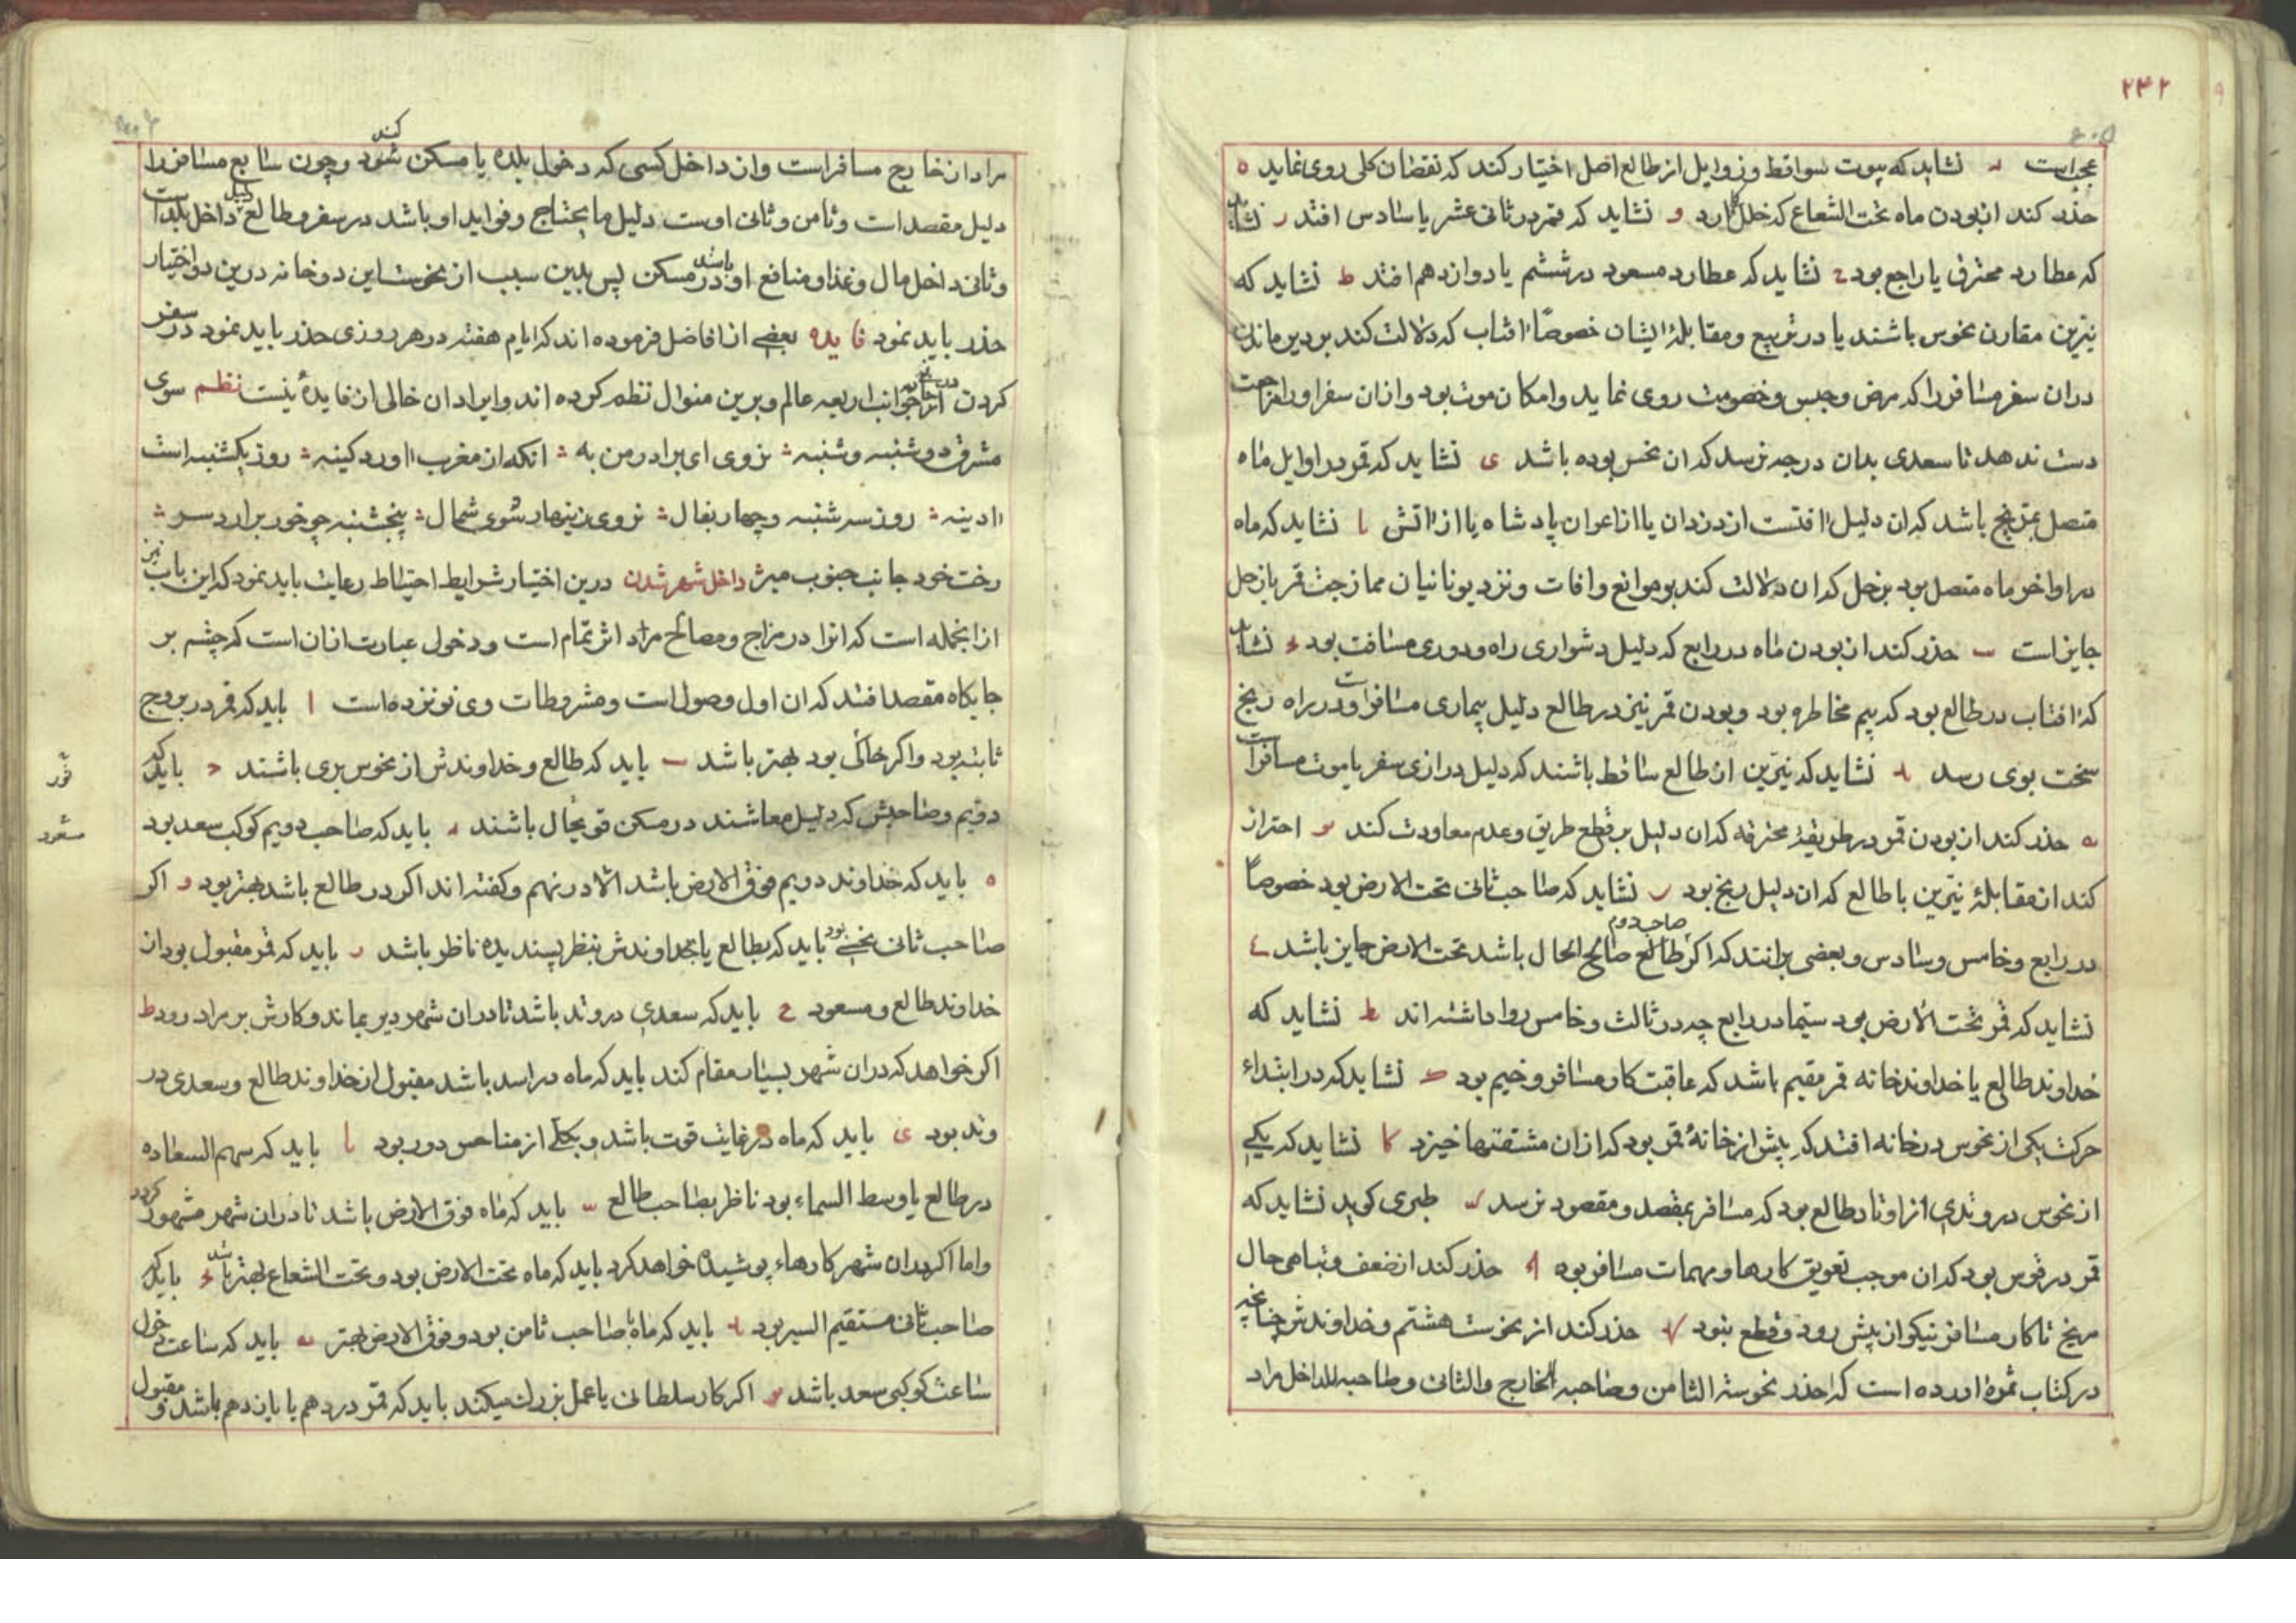 ۲۴۲
عجز است د نشاید که بیوت سواقط و زوایل از طالع اصل اختیار کند که نقصان کلی روی نماید ه
حذر کند از بودن ماه تحت الشعاع که خلل دارد و نشاید که قمر در ثانی عشر یا سادس افتد ز نشاید
که عطارد محترق یا راجع بود ح نشاید که عطارد مسعود در ششم یا دوازدهم افتد ط نشاید که
نیرین مقارن نحوس باشند یا در تربیع و مقابلهٔ ایشان خصوصاً افتاب که دلالت کند بر دیر ماندن
در ان سفر مسافر را که مرض و حبس و خصومت روی نماید و امکان موت بود و از ان سفر او را مراجعت
دست ندهد تا سعدی بدان درجه نرسد که ان نحس بوده باشد ی نشاید که قمر در اوایل ماه
متصل بمریخ باشد که ان دلیل افتست از دزدان یا از اعوان پادشاه یا از اتش یا نشاید که ماه
در اواخر ماه متصل بود بزحل که ان دلالت کند بر موانع و افات و نزد یونانیان ممازجت قمر با زحل
جایز است یب حذر کند از بودن ماه در رابع که دلیل دشواری راه و دوری مسافت بود یج نشاید
که افتاب در طالع بود که بیم مخاطره بود و بودن قمر نیز در طالع دلیل بیماری مسافر است و در راه رنج
سخت بوی رسد ید نشاید که نیرین از طالع ساقط باشند که دلیل درازی سفر یا موت مسافر است
یه حذر کند از بودن قمر در طریقهٔ محترقه که ان دلیل بر قطع طریق و عدم معاودت کند یو احتراز
کند از مقابلهٔ نیرین با طالع که ان دلیل رنج بود یز نشاید که صاحب ثانی تحت الارض بود خصوصاً
در رابع و خامس و سادس و بعضی برانند که اگر صاحب دوم طالع صالح الحال باشد تحت الارض جایز باشد یح
نشاید که قمر تحت الارض بود سیما در رابع چه در ثالث و خامس روا داشته اند یط نشاید که
خداوند طالع یا خداوند خانه قمر مقیم باشد که عاقبت کار مسافر وخیم بود ک نشاید که در ابتداء
حرکت یکی از نحوس در خانه افتد که پیش از خانهٔ قمر بود که از ان مشقتها خیزد کا نشاید که یکی
از نحوس در وتدی از اوتاد طالع بود که مسافر بمقصد و مقصود نرسد کب طبری کوید نشاید که
قمر در قوس بود که ان موجب تعویق کارها و مهمات مسافر بود کج حذر کند از ضعف و تباهی حال
مریخ تا کار مسافر نیکو از پیش رود و قطع بنود کد حذر کند از نحوست هشتم و خداوندش چنانچه
در کتاب ثمره اورده است که احذر نحوسة الثامن و صاحبه للخارج والثانی و صاحبه للداخل مراد
مراد از خارج مسافر است و از داخل کسی که دخول بلده یا مسکن شود کند و چون سابع مسافر را
دلیل مقصد است و ثامن و ثانی اوست دلیل مایحتاج و فواید او باشد در سفر و طالع دلیل داخل بلد است
و ثانی داخل مال و غذا و منافع او باشد در مسکن پس بدین سبب از نحوست این دو خانه درین دو اختیار
حذر باید نمود فایده بعضی از افاضل فرموده اند که ایام هفته در هر روزی حذر باید نمود در سفر
کردن از جوانب اربعه عالم و برین منوال نظم کرده اند و ایراد ان خالی از فایدهٔ نیست نظم سوی
مشرق دوشنبه و شنبه نروی ای برادر من به انکه از مغرب اورد کینه روز یکشنبه است
ادینه روز سه شنبه و چهار بفال نروی زینهار سوی شمال پنجشنبه چو خور برارد سر
رخت خود جانب جنوب مبر داخل شهر شدن درین اختیار شرایط احتیاط رعایت باید نمود که این باب نیز
از انجمله است که انرا در مزاج و مصالح مراد اثر تمام است و دخول عبارت از ان است که چشم بر
جایکاه مقصد افتد که ان اول وصول است و مشروطات وی نوزده است ا باید که قمر در بروج
ثابته بود و اکر خاکی بود بهتر باشد ب باید که طالع و خداوندش از نحوس بری باشند ج باید که
دویم و صاحبش که دلیل معاشند در مسکن قوی حال باشند د باید که صاحب دویم کوکب سعد بود
ه باید که خداوند دویم فوق الارض باشد الا در نهم و کفته اند اکر در طالع باشد بهتر بود و اکر
صاحب ثانی نحس بود باید که بطالع یا خداوندش بنظر پسندیده ناظر باشد ز باید که قمر مقبول بود از
خداوند طالع و مسعود ح باید که سعدی در وتد باشد تا در ان شهر دیر بماند و کارش بر مراد رود ط
اکر خواهد که در ان شهر بسیار مقام کند باید که ماه در اسد باشد مقبول از خداوند طالع و سعدی در
وتد بود ی باید که ماه در غایت قوت باشد و بکلی از مناحس دور بود یا باید که سهم السعاده
در طالع یا وسط السماء بود ناظر بصاحب طالع یب باید که ماه فوق الارض باشد تا در ان شهر مشهور کردد
و اما اکر در ان شهر کارهاء پوشیده خواهد کرد باید که ماه تحت الارض بود و تحت الشعاع بهتر باشد یج باید که
صاحب ثانی مستقیم السیر بود ید باید که ماه با صاحب ثامن بود و فوق الارض بهتر یه باید که ساعت دخول
ساعت کوکبی سعد باشد یو اکر کار سلطانی یا عمل بزرک میکند باید که قمر در دهم یا یازدهم باشد و مقبول
مسعود